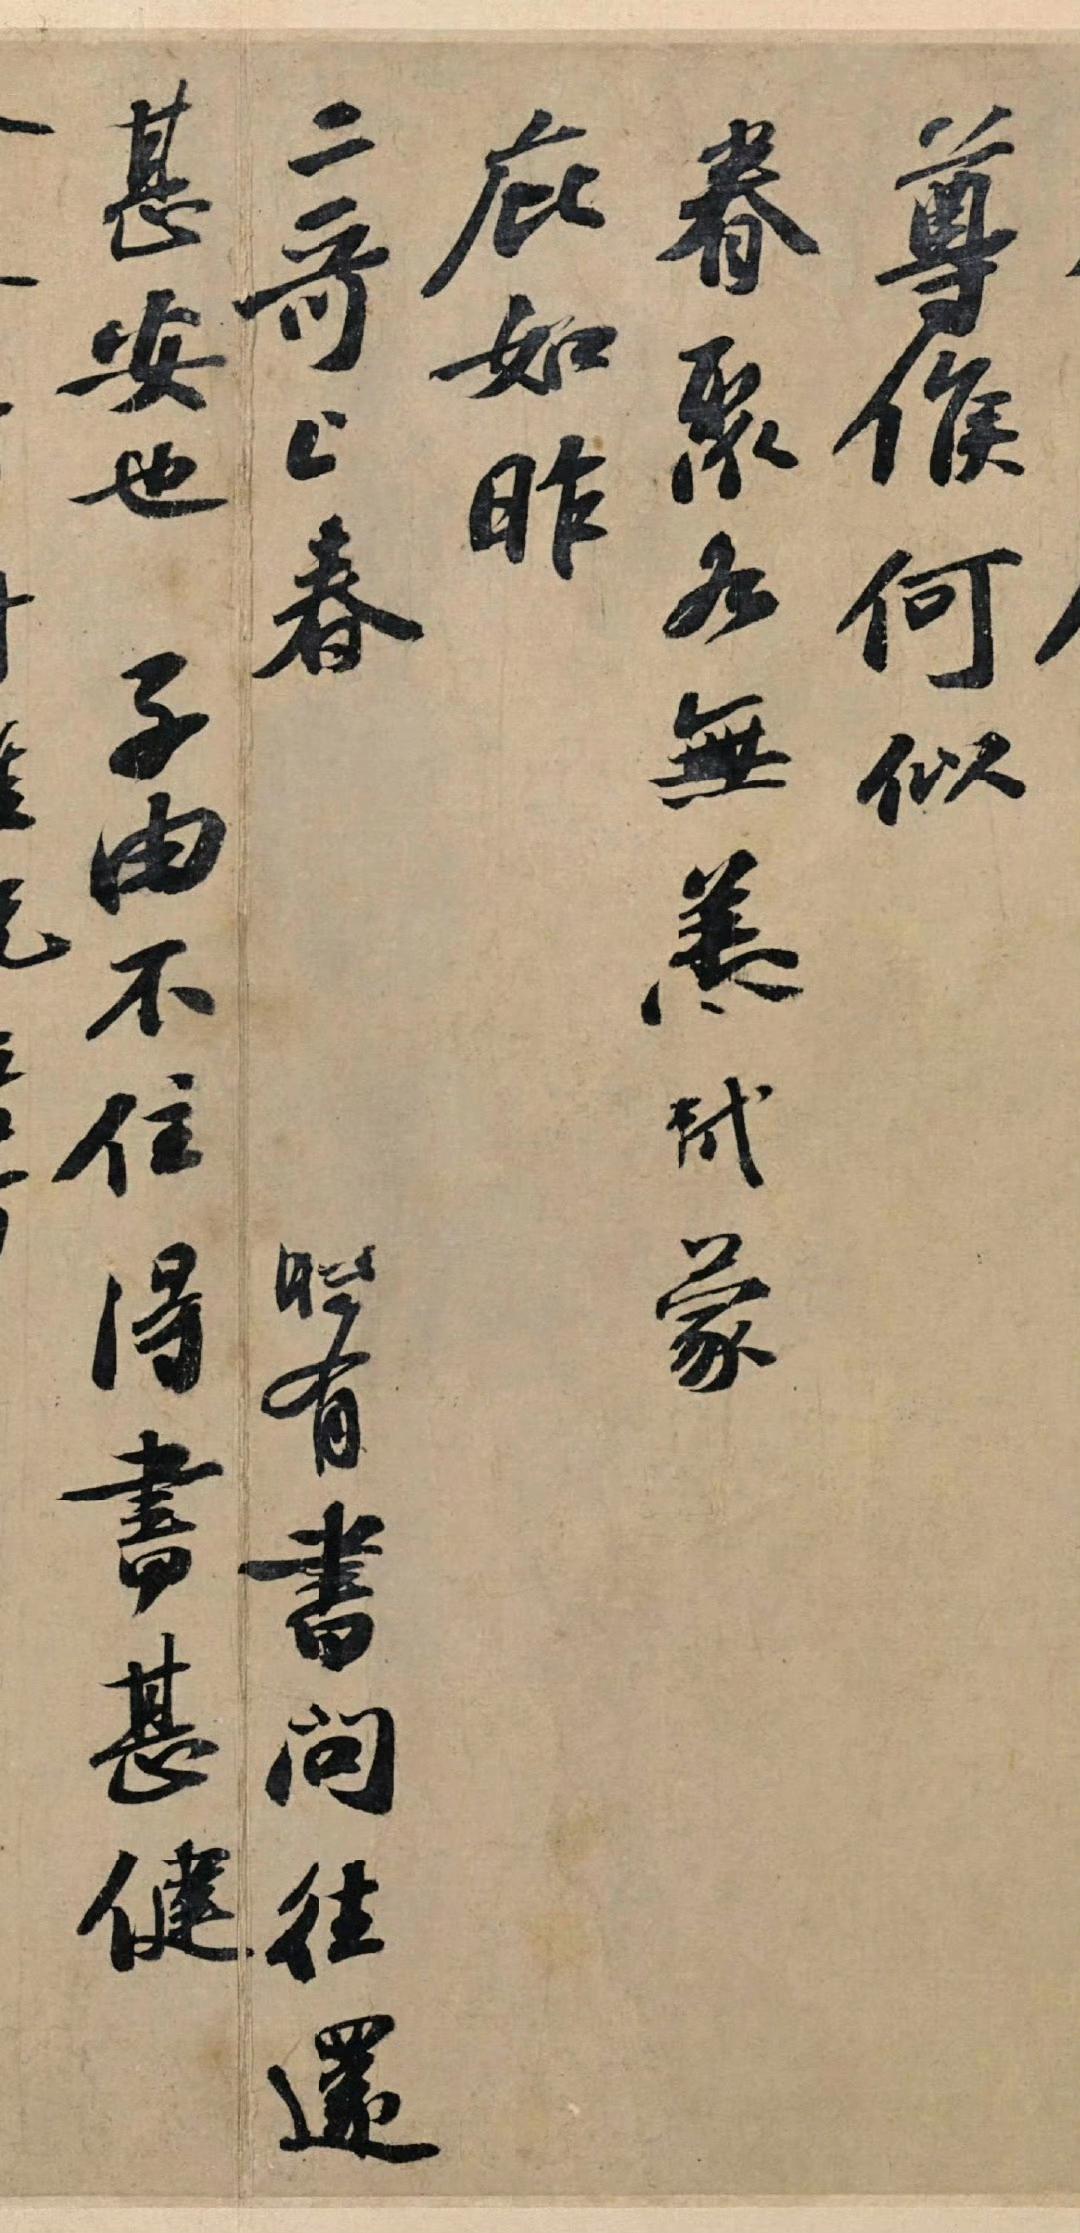 尊候何似
眷聚各無恙軾蒙
庇如昨
二哥上春 時有書問往還
甚安也 子由不住得書甚健